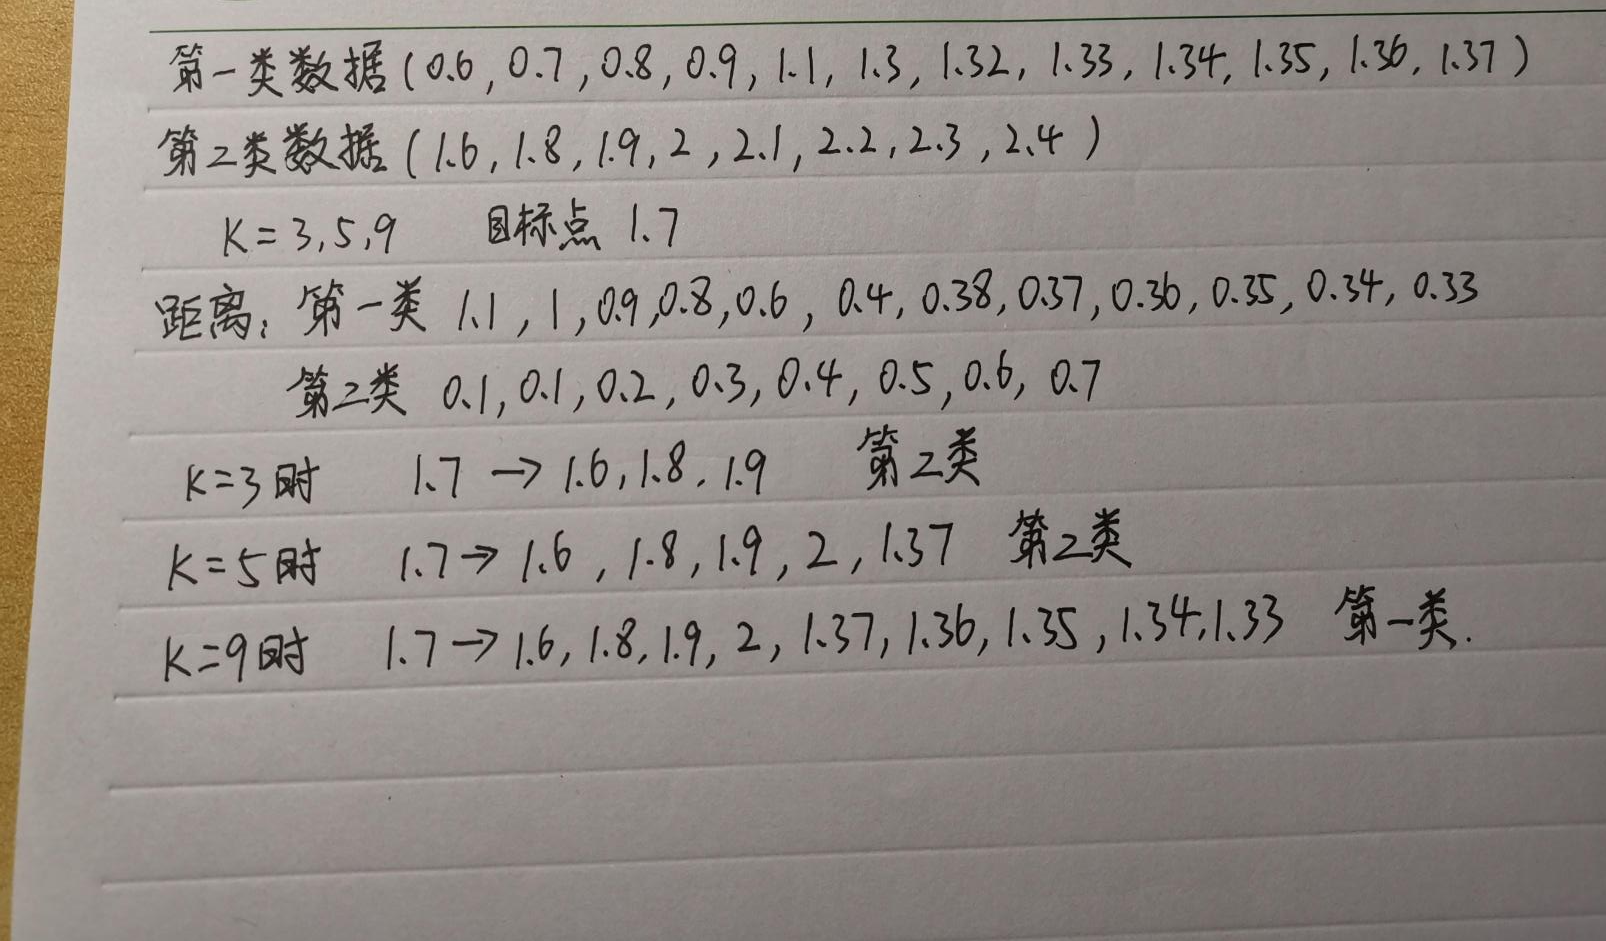 第一类数据(0.6,0.7,0.8,0.9,1.1,1.3,1.32,1.33,1.34,1.35,1.36,1.37)
第二类数据(1.6,1.8,1.9,2,2.1,2.2,2.3,2.4)
K=3,5,9 目标点 1.7
距离:第一类 1.1,1,0.9,0.8,0.6,0.4,0.38,0.37,0.36,0.35,0.34,0.33
第二类 0.1,0.1,0.2,0.3,0.4,0.5,0.6,0.7
K=3时 1.7→1.6,1.8,1.9 第二类
K=5时 1.7→1.6,1.8,1.9,2,1.37 第二类
K=9时 1.7→1.6,1.8,1.9,2,1.37,1.36,1.35,1.34,1.33 第一类.